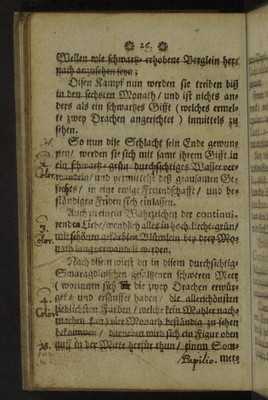 26.
Wellen wie schwartz- erhobene Berglein hers
nach anzusehen seyn;
Disen Kampf nun werden sie treiben biß
in den sechsten Monath / und ist nichts ans
ders als ein schwartzes Gifft (welches ermels
te zwey Drachen angerichtet) inmittels zu
sehen.
So nun dise Schlacht sein Ende gewuns
nen / werden sie sich mit samt ihrem Gifft in
ein schwartz- grün- durchsichtiges Wasser vers
wandeln / und vermittelst deß grausamen Ges
fechts / in eine ewige Freundschafft / und bes
ständigen Friden sich einlassen.
Auch zu einem Wahrzeichen der continuis
renden Liebe / wendlich alles in hoch-liecht-grün /
mit schönen gefärbten Blümlein bey drey Mos
nath lang verwandelt werden.
Nach disem wirst du in disem durchsichtigs
Smaragdinischen gesaltzenen schweren Meer
(worinnen sich die zwey Drachen erwürs
get / und ersäuffet haben / die allerschönsten
lieblichsten Farben / welche kein Mahler nachs
machen kan) vier Monath beständig zu sehen
bekommen / darneben wird sich ein Figur oben
auff in der Mitte herfür thun / einem Soms
Papilio. mers
Color.
Color.
Color